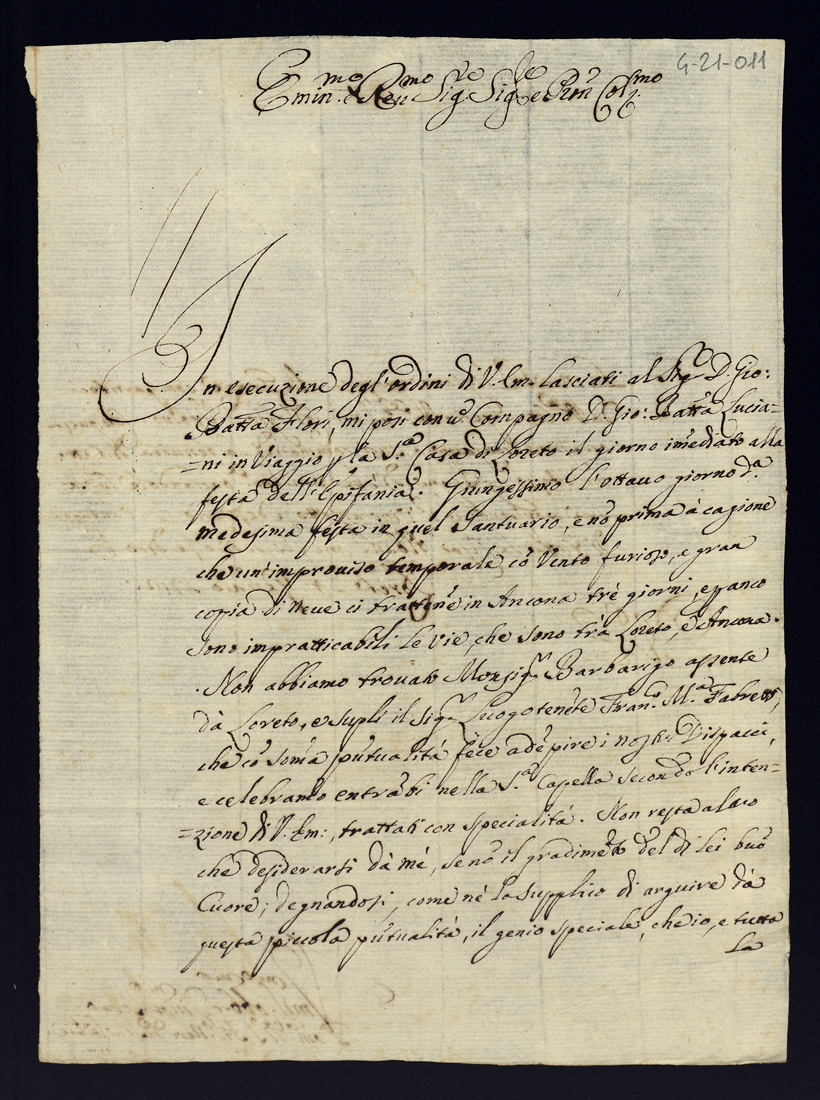 G-21-011
Emin.mo e Ren.mo Sig.re Sig.re e Pron Col.mo
In esecuzione degl'ordini di V. Em. lasciati al Sig.r D. Gio:
Batta Flori, mi posi con un Compagno D. Gio: Batta Lucia=
=ni in Viaggio p la S.a Casa di Loreto il giorno imediato alla
festa dell'Epifania. Giungessimo l'ottavo giorno d.a
medesima festa in quel Santuario, e nõ prima à cagione
che un'improviso temporale cõ Vento furioso, e gran
copia di Neve ci trattene in Ancona trè giorni, e panco
sono impratticabili le vie, che sono trà Loreto, et Ancona.
Non abbiamo trovato Monsig.r Barbarigo assente
dà Loreto, e supli il Sig.r Luogotenẽte Fran.o M.a Fabretti,
che cõ soma pũtualità fece adẽpire i nostri Dispacci,
e celebramo entrãbi nella S.a Capella secondo l'inten=
=zione di V. Em:, trattati con specialità. Non resta altro
che desiderarsi dà mè, se nõ il gradimẽto del di lei buõ
Cuore; degnandosi, come nè lo supplico di arguire dà
questa piccola pũtualità, il genio speciale, che io, e tutta
la